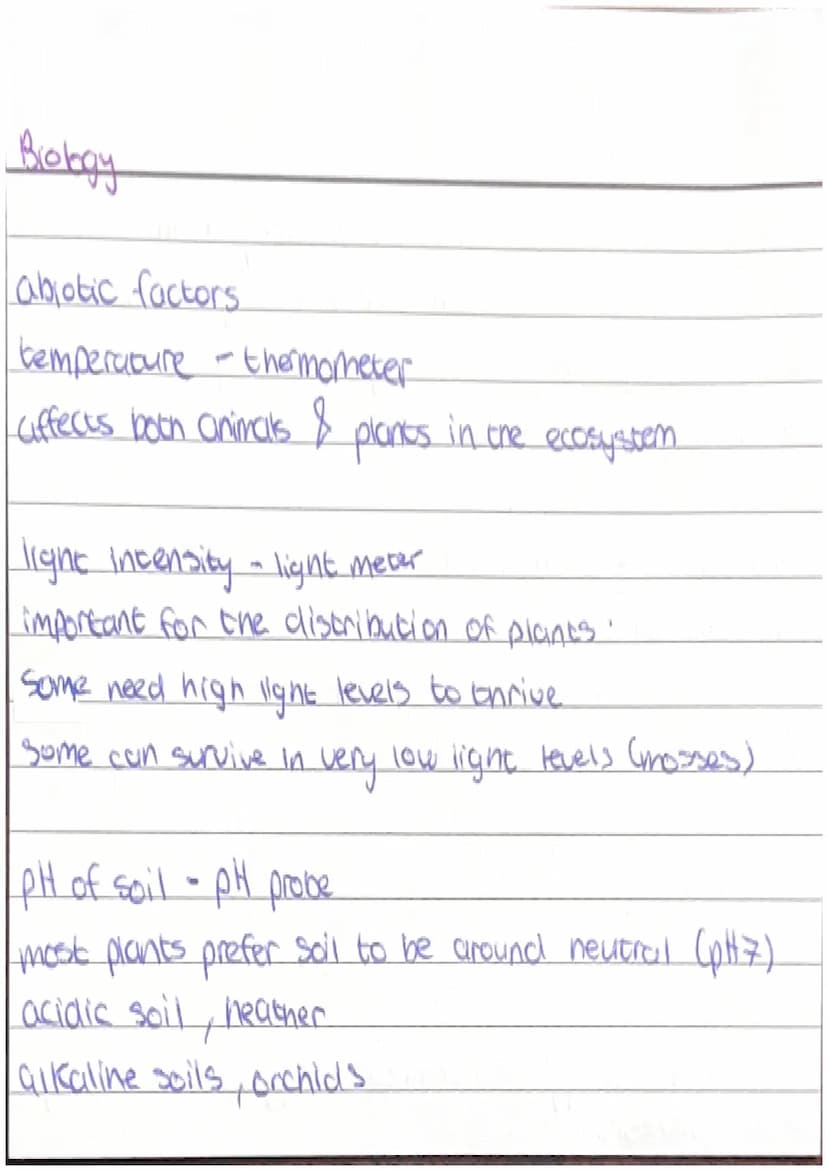 Biology
abiotic factors
temperature - thermometer
affects both animals & plants in the ecosystem
light intensity - light meter
important for the distribution of plants.
some need high light levels to thrive
some can survive in very low light levels (mosses)
pH of soil - pH probe
most plants prefer soil to be around neutral (pH7)
acidic soil, heather
alkaline soils, orchids